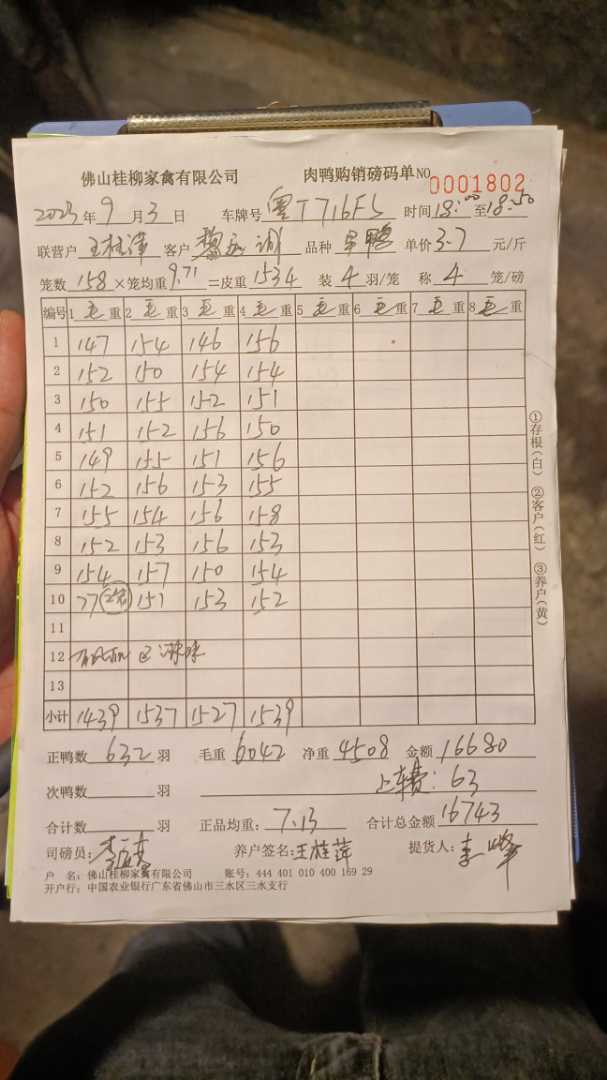 佛山桂柳家禽有限公司 肉鸭购销磅码单 NO 0001802
2023年9月3日 车牌号 粤T716F5 时间18:00至18:50
联营户 王桂萍 客户 品种 单价 3.7 元/斤
笼数 158 ×笼均重 9.71 =皮重 1534 装 4 羽/笼 称 4 笼/磅
编号 1 毛 重 2 毛 重 3 毛 重 4 毛 重 5 毛 重 6 毛 重 7 毛 重 8 毛 重
1 147 154 146 156
2 152 150 154 154
3 150 155 152 151
4 151 152 156 150
5 149 155 151 156
6 152 156 153 155
7 155 154 156 158
8 152 153 156 153
9 154 157 150 154
10 77 (2笼) 151 153 152
11
12
13
小计 1439 1537 1527 1539
正鸭数 632 羽 毛重 6042 净重 4508 金额 16680
次鸭数 羽 上车费: 63
合计数 羽 正品均重: 7.13 合计总金额 16743
司磅员: 养户签名: 王桂萍 提货人: 李峰
户 名: 佛山桂柳家禽有限公司 账号: 444 401 010 400 169 29
开户行: 中国农业银行广东省佛山市三水区三水支行
①存根(白) ②客户(红) ③养户(黄)